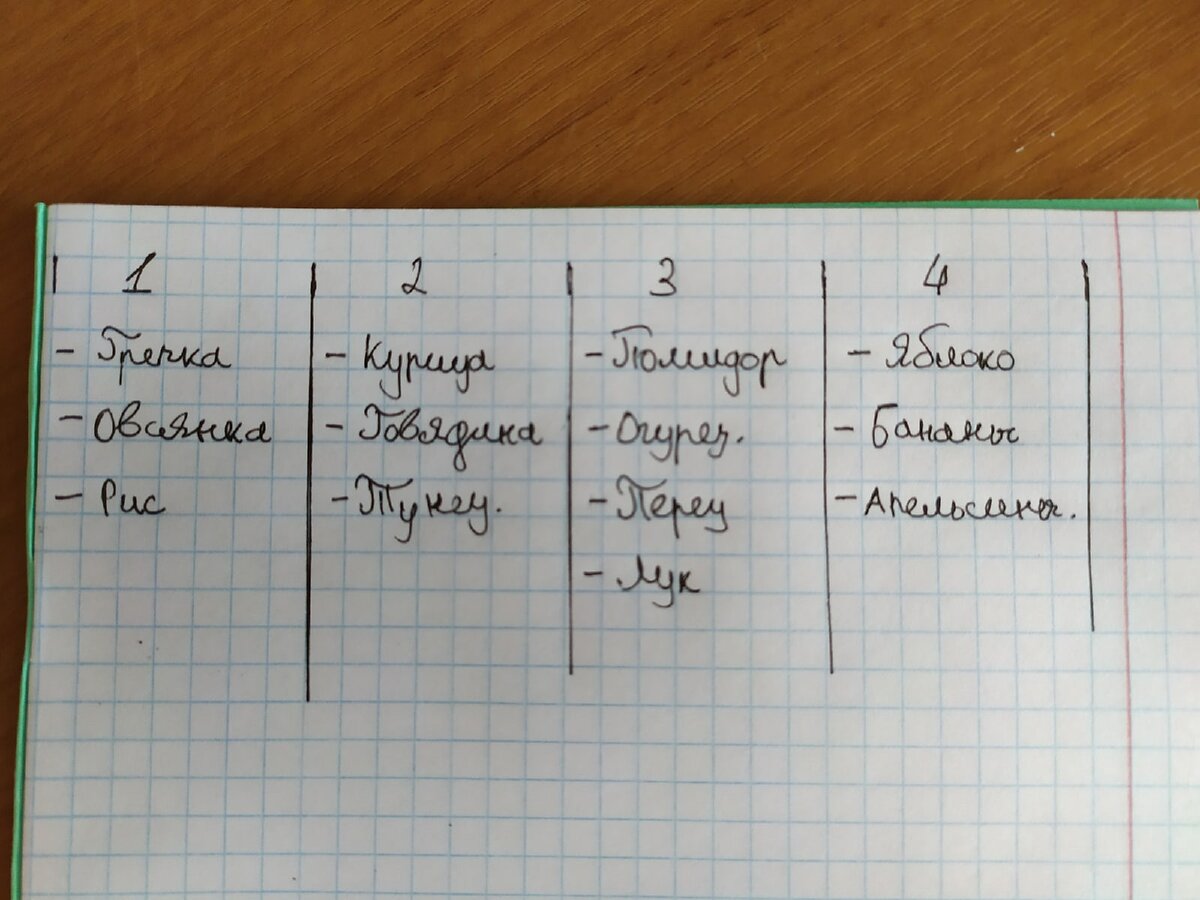 1 2 3 4
- Гречка - Курица - Помидор - Яблоко
- Овсянка - Говядина - Огурец. - Бананы
- Рис - Тунец. - Перец - Апельсины.
- Лук